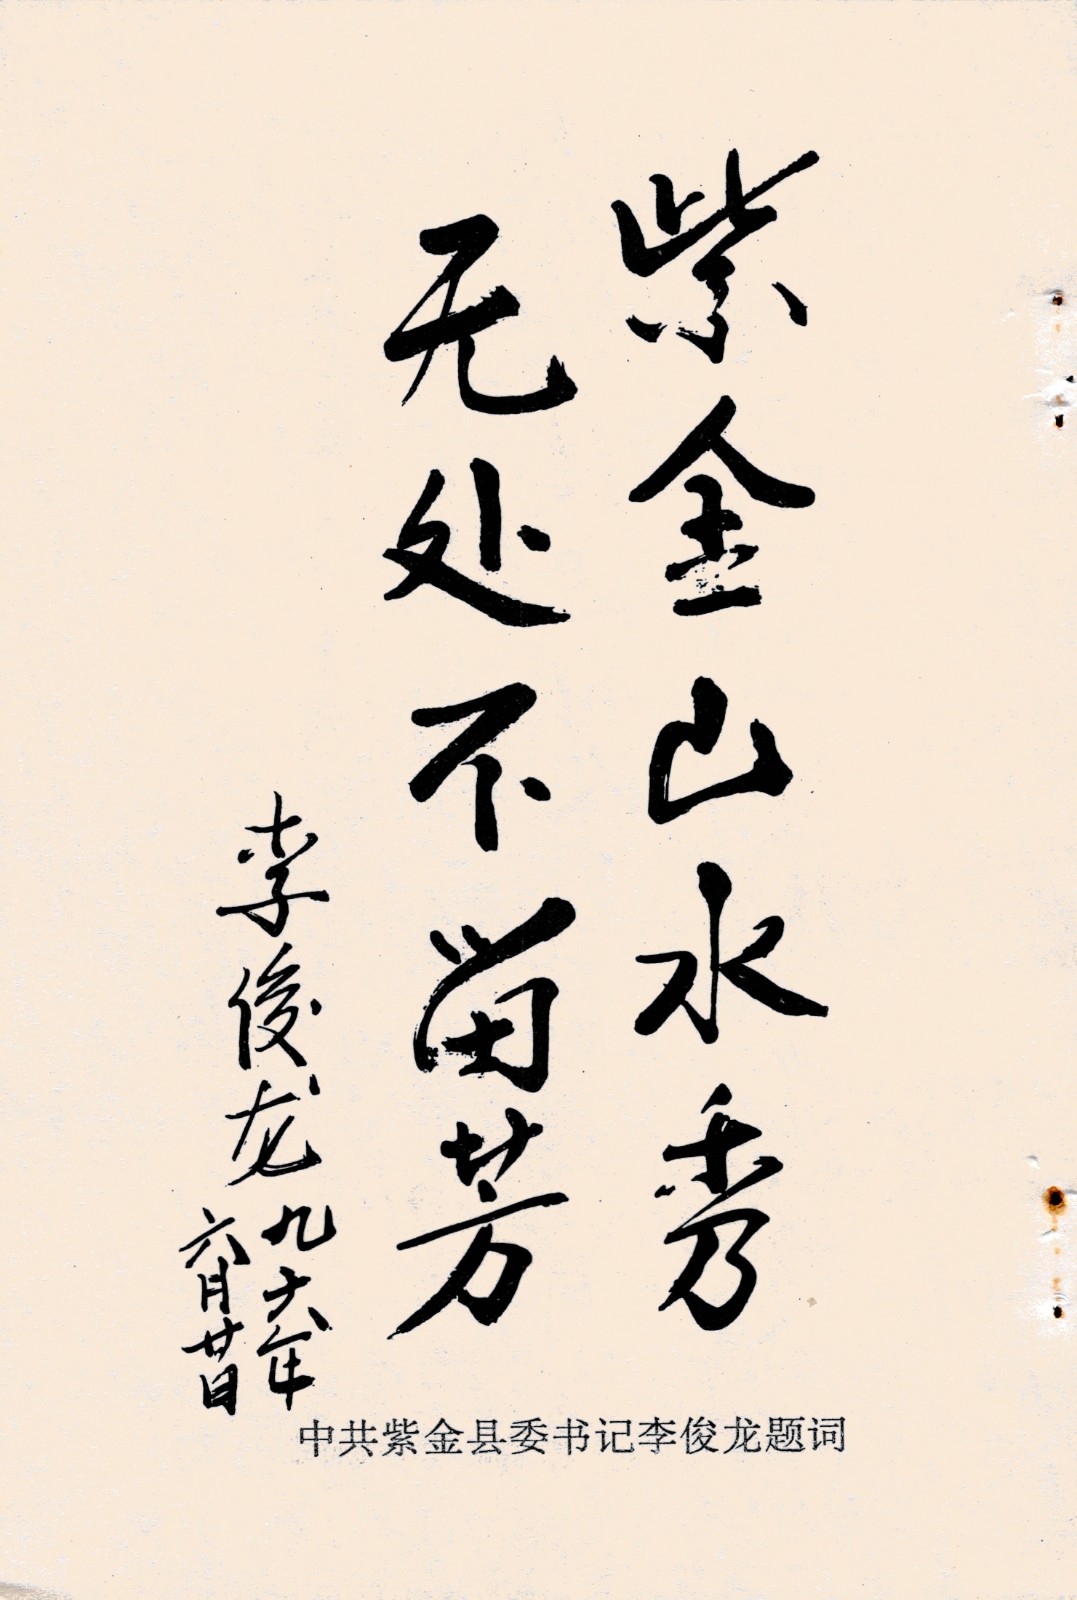 紫金山水秀
无处不留芳
李俊龙
九六年
六月廿日
中共紫金县委书记李俊龙题词